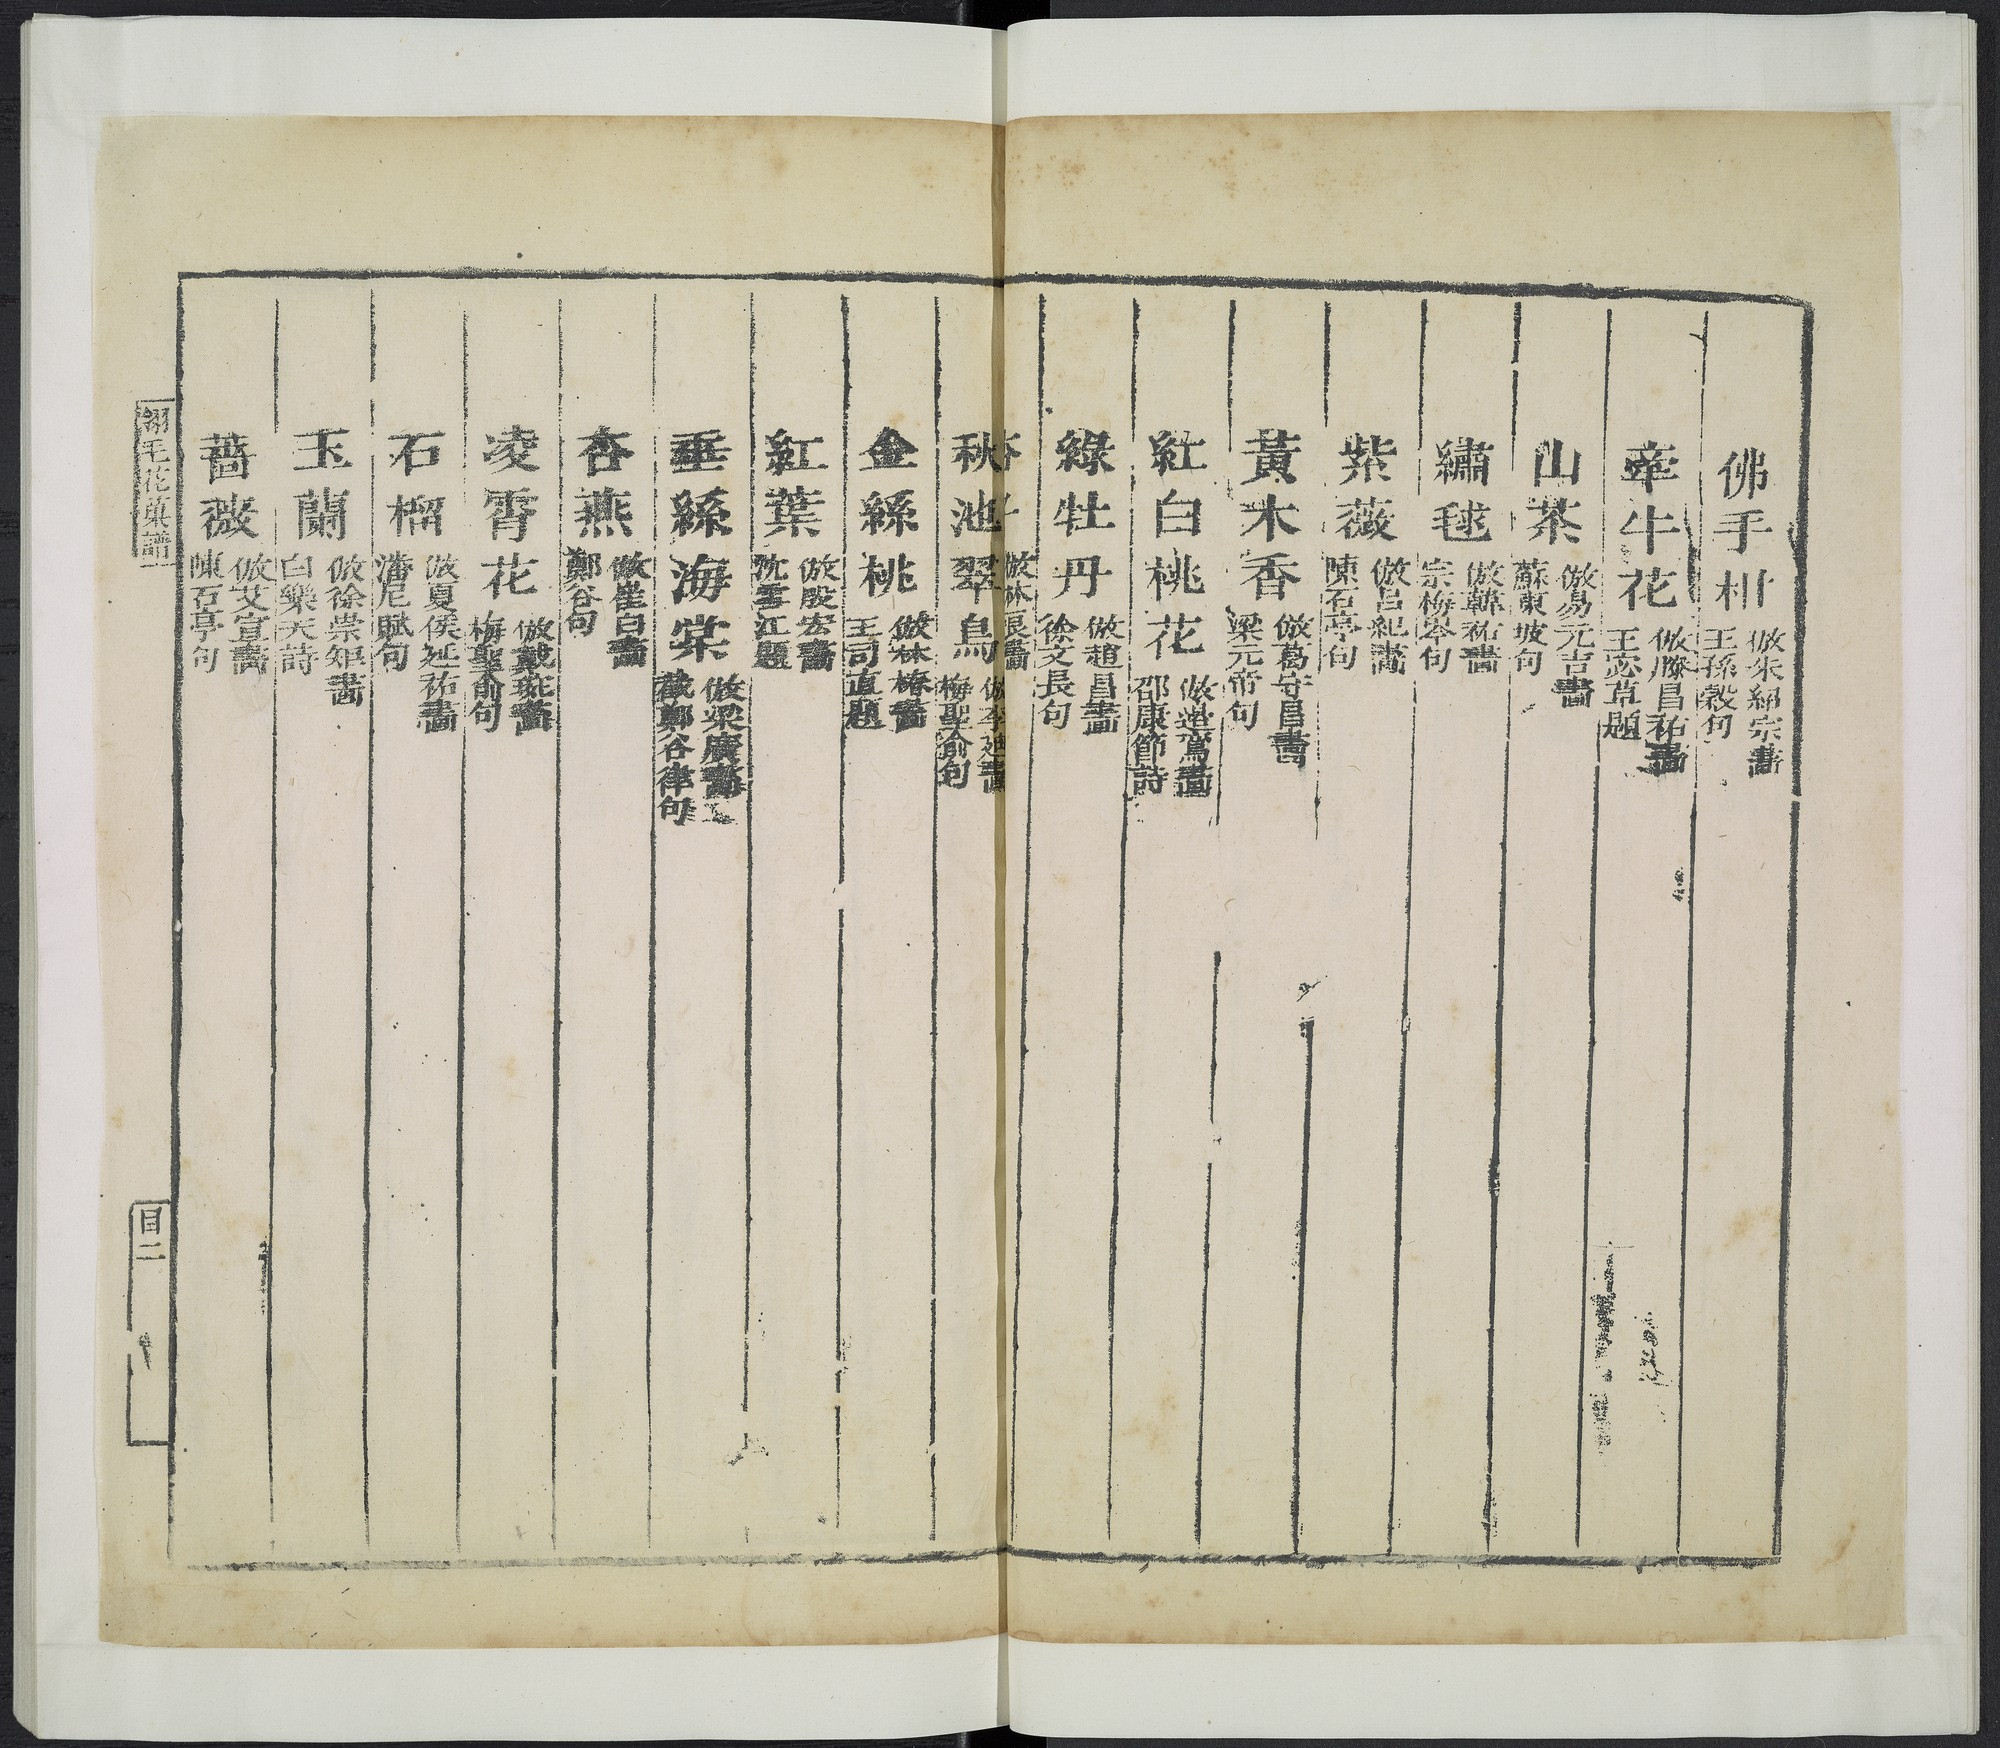 佛手柑 倣朱紹宗畫 王孫穀句
牽牛花 倣滕昌祐畫 王宓草題
山茶 倣易元吉畫 蘇東坡句
繡毬 倣韓祐畫 宗梅岑句
紫薇 倣呂紀畫 陳石亭句
黃木香 倣葛守昌畫 梁元帝句
紅白桃花 倣邊鸞畫 邵康節詩
綠牡丹 倣趙昌畫 徐文長句
倣林良畫
秋池翠鳥 倣李迪畫 梅聖俞句
金絲桃 倣林椿畫 王司直題
紅葉 倣殷宏畫 沈雪江題
垂絲海棠 倣梁廣畫 截鄭谷律句
杏燕 倣崔白畫 鄭谷句
凌霄花 倣戴琬畫 梅聖俞句
石榴 倣夏侯延祐畫 潘尼賦句
玉蘭 倣徐崇矩畫 白樂天詩
薔薇 倣艾宣畫 陳石亭句
翎毛花菓譜
目二